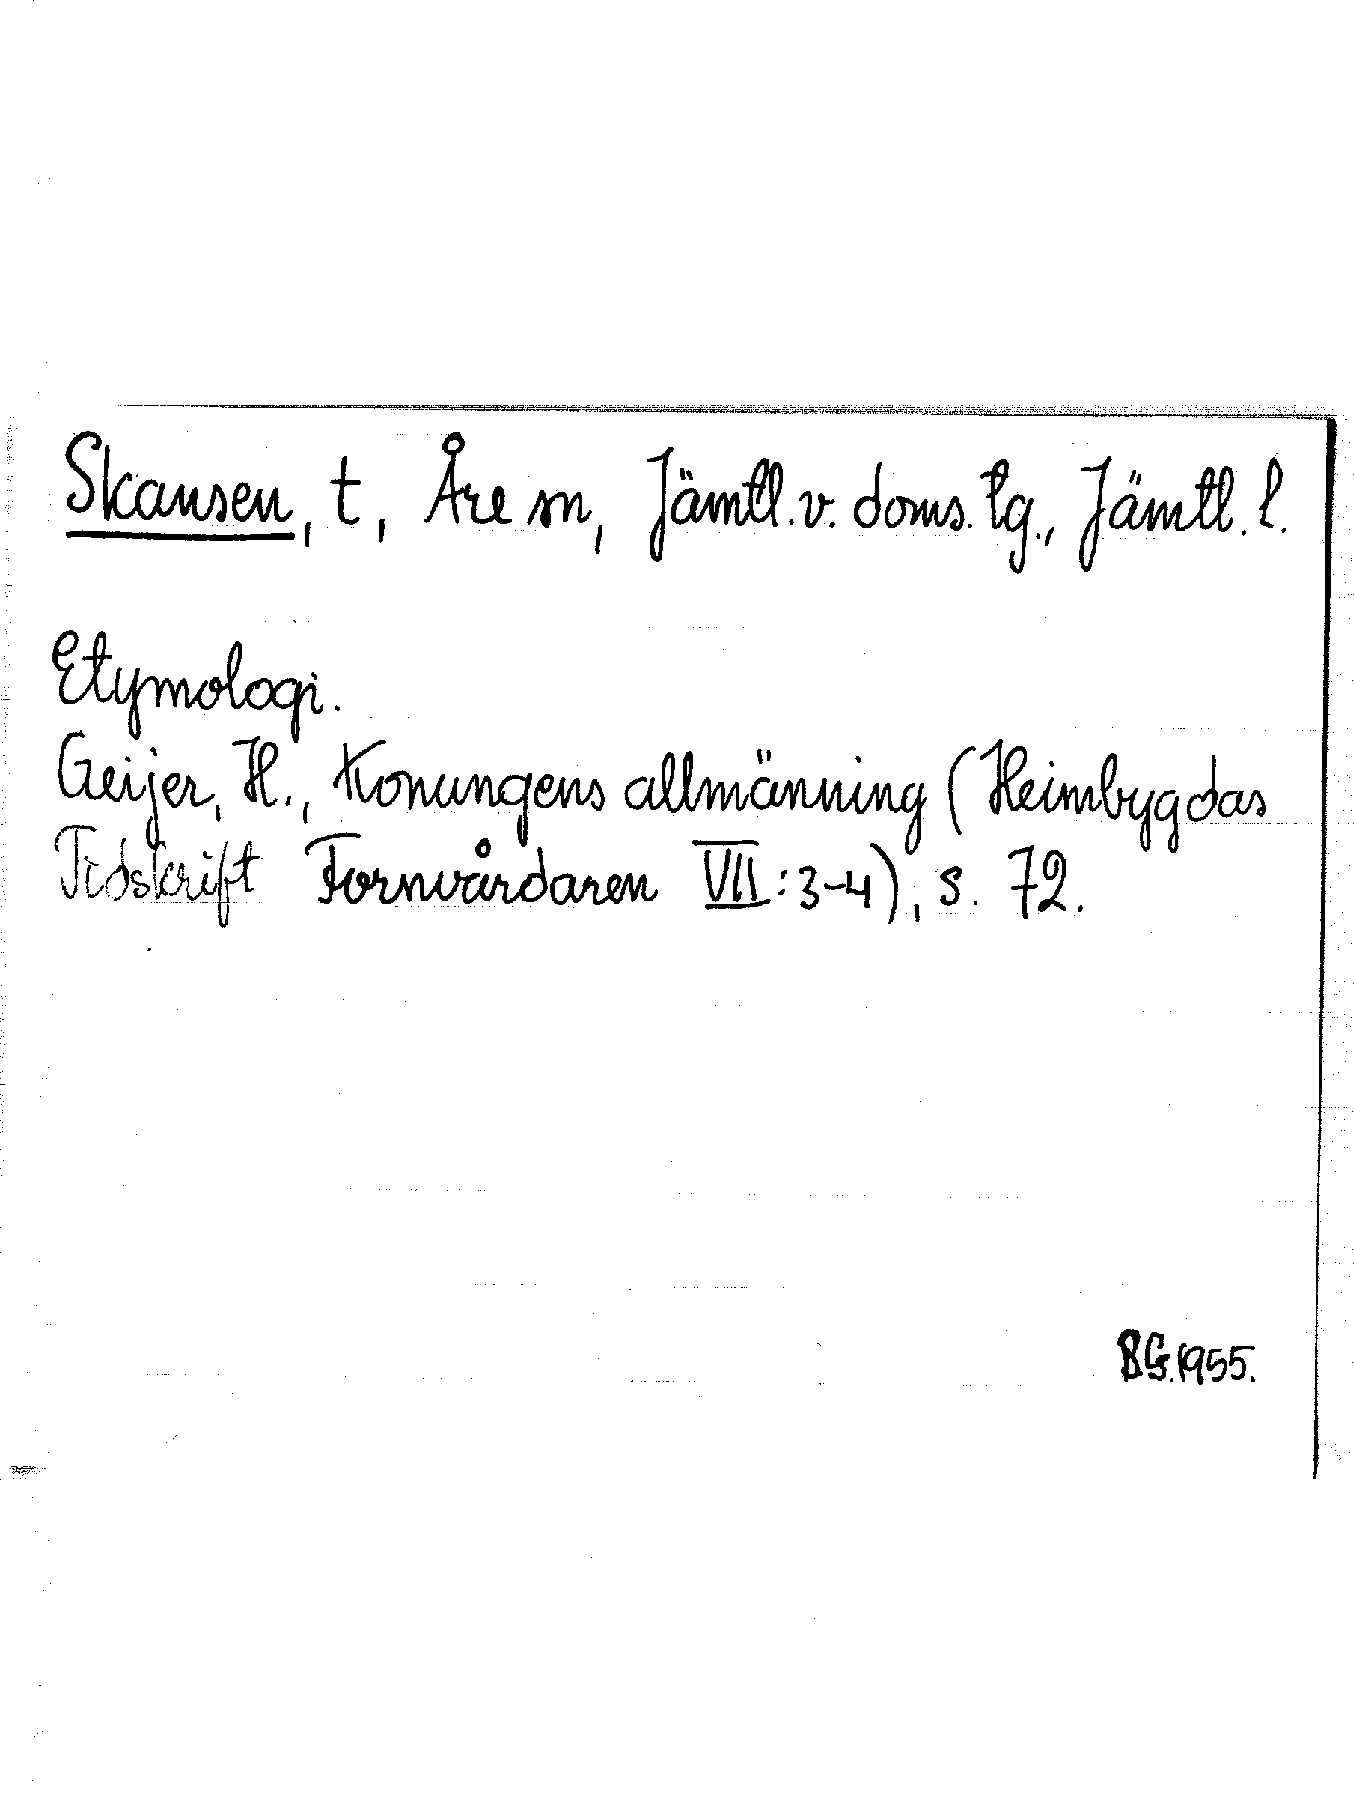 Skansen, t, Åre sn, Jämtl. v. doms. tg., Jämtl. l.
Etymologi.
Geijer, H., Konungens allmänning (Heimbygdas
Tidskrift Fornvårdaren VII:3-4), s. 72.
BG. 1955.